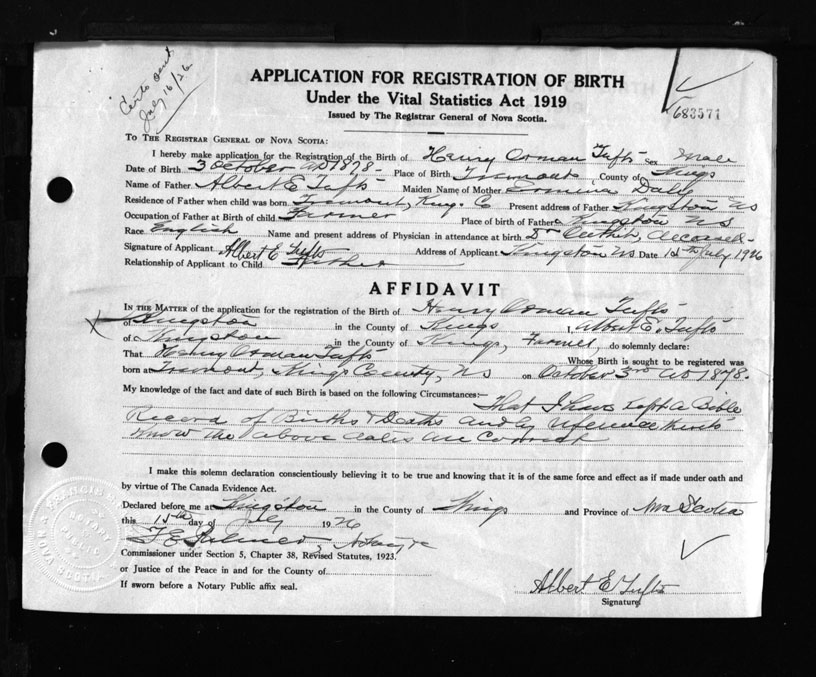 Certs sent
July 16/26
APPLICATION FOR REGISTRATION OF BIRTH
Under the Vital Statistics Act 1919
Issued by The Registrar General of Nova Scotia.
683571
TO THE REGISTRAR GENERAL OF NOVA SCOTIA:
I hereby make application for the Registration of the Birth of Henry Orman Tufts Sex Male
Date of Birth 3 October AD 1878- Place of Birth Tremont County of Kings
Name of Father Albert E Tufts Maiden Name of Mother Ermina Daly
Residence of Father when child was born Tremont, Kings Co Present address of Father Kingston NS
Occupation of Father at Birth of child Farmer Place of birth of Father Kingston NS
Race English Name and present address of Physician in attendance at birth Dr deceased-
Signature of Applicant Albert E Tufts Address of Applicant Kingston NS Date 15th July 1926
Relationship of Applicant to Child Father
AFFIDAVIT
IN THE MATTER of the application for the registration of the Birth of Henry Orman Tufts
of Kingston in the County of Kings I, Albert E. Tufts
of Kingston in the County of Kings, Farmer do solemnly declare:
That Henry Orman Tufts Whose Birth is sought to be registered was
born at Tremont, Kings County, NS on October 3rd AD 1878.
My knowledge of the fact and date of such Birth is based on the following Circumstances:— That I have kept a Bible
Record of Births & Deaths and by reference thereto
know the above dates are correct
I make this solemn declaration conscientiously believing it to be true and knowing that it is of the same force and effect as if made under oath and
by virtue of The Canada Evidence Act.
Declared before me at Kingston in the County of Kings and Province of Nova Scotia
this 15th day of July 1926
Commissioner under Section 5, Chapter 38, Revised Statutes, 1923.
or Justice of the Peace in and for the County of
If sworn before a Notary Public affix seal.
Albert E Tufts
Signature
FRANCIS
NOTARY
PUBLIC
NOVA SCOTIA